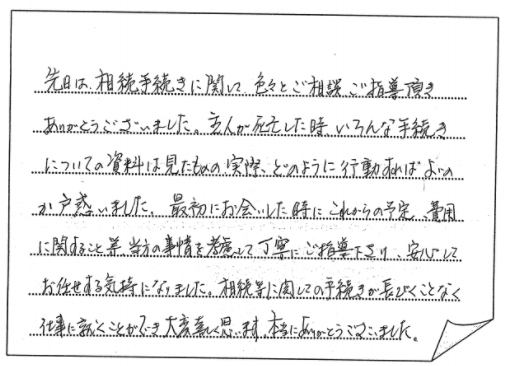 先日は、相続手続きに関して、色々とご相談、ご指導頂き
ありがとうございました。主人が死亡した時、いろんな手続き
についての資料は見たものの、実際、どのように行動すればよいの
か戸惑いました。最初にお会いした時に、これからの予定、費用
に関すること等、当方の事情を考慮して丁寧にご指導下さり、安心して
お任せする気持になりました。相続等に関しての手続きが長びくことなく
仕事に就くことができ大変嬉しく思います。本当にありがとうございました。